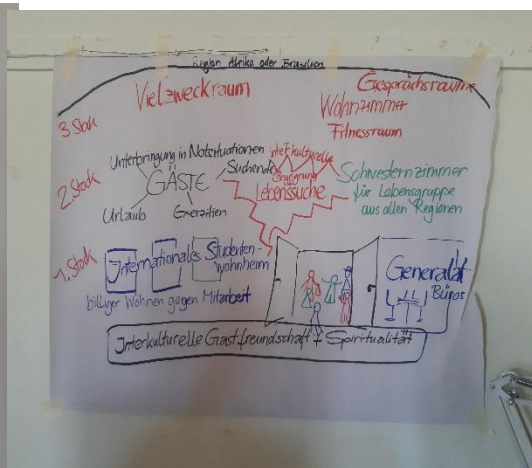 Region Afrika oder Brasilien
Vielzweckraum
Gesprächsraum
Wohnzimmer
Fitnessraum
3. Stock
2. Stock
Unterbringung in Notsituationen
Suchende
GÄSTE
Urlaub
Exerzitien
interkulturelle
Begegnung
Lebenssuche
Schwesternzimmer
für Lebensgruppe
aus allen Regionen
1. Stock
Internationales Studenten-
wohnheim
billiger Wohnen gegen Mitarbeit
Generalat
Büros
Interkulturelle Gastfreundschaft + Spiritualität